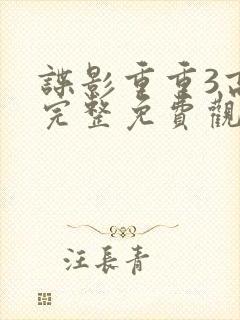 諜影重重3,高
完整免費觀
汪長青